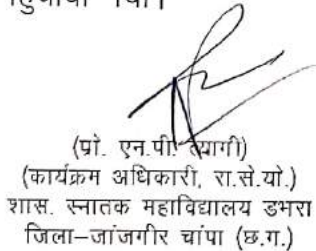 गया।
(प्रो. एन.पी. त्यागी)
(कार्यक्रम अधिकारी, रा.से.यो.)
शास. स्नातक महाविद्यालय डभरा
जिला–जांजगीर चांपा (छ.ग.)